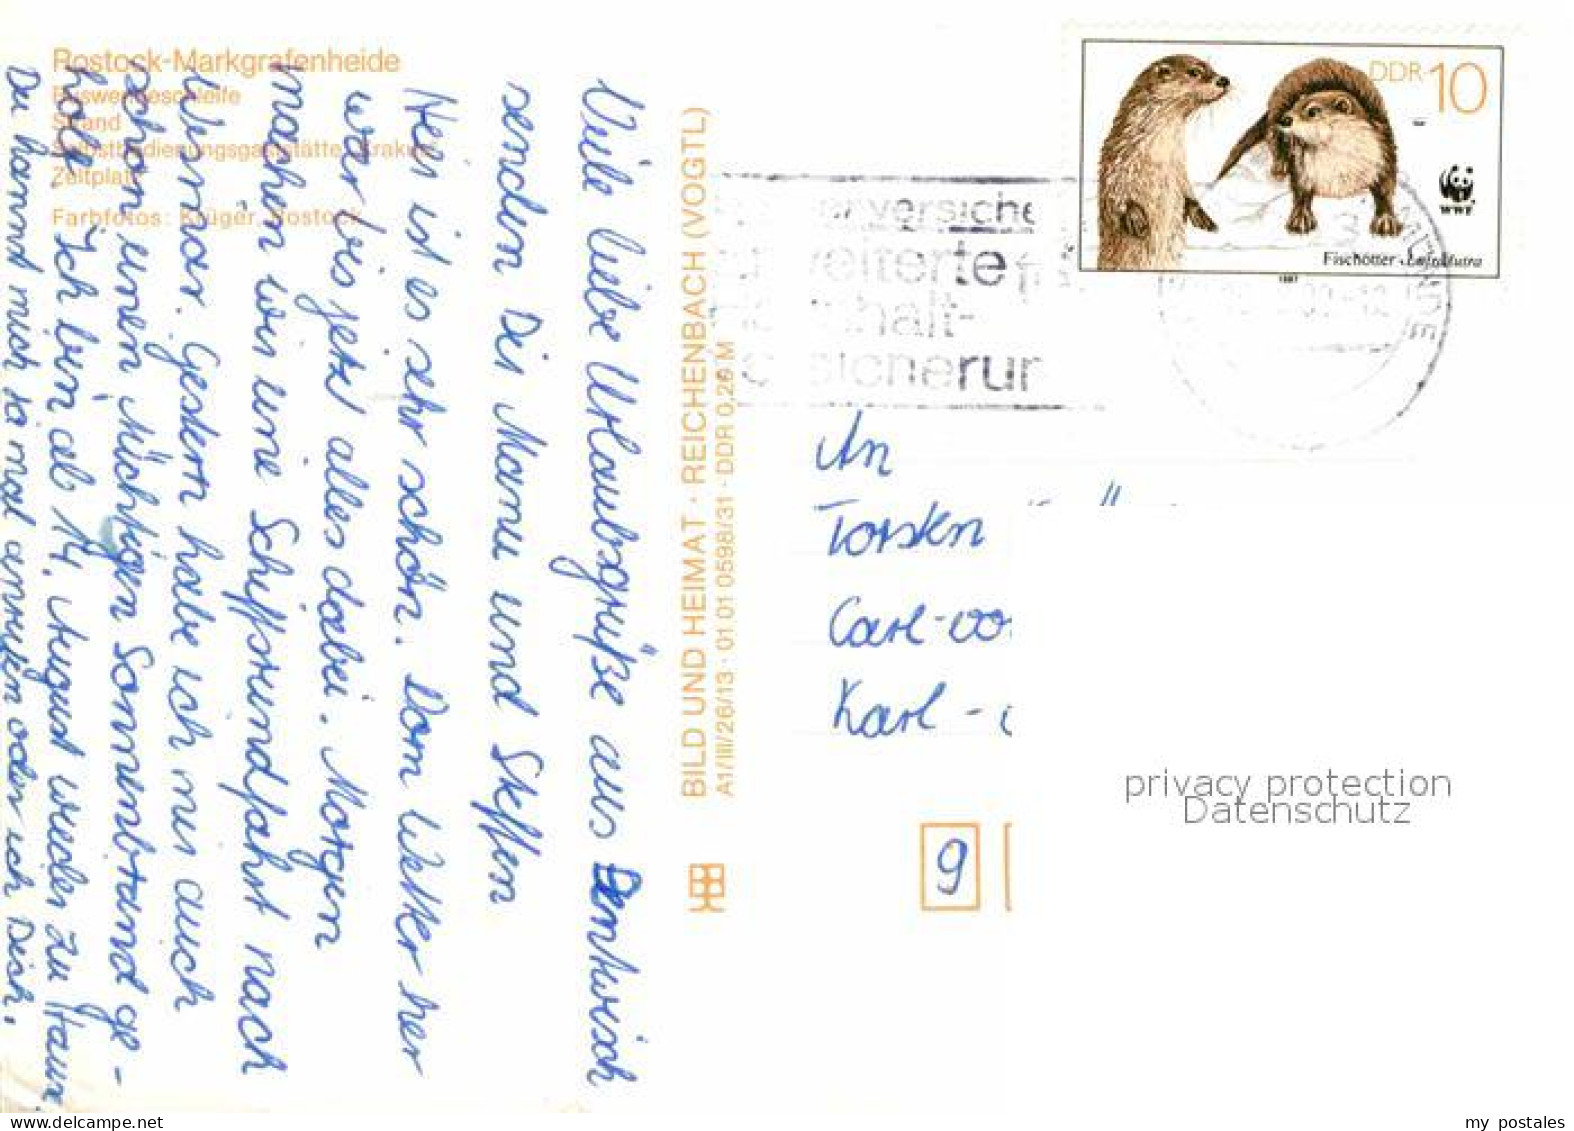 Rostock-Markgrafenheide
Buswendeschleife
Strand
Selbstbedienungsgaststätte "Krakus"
Zeltplatz
Farbfotos: Krüger, Rostock
Viele liebe Urlaubsgrüße aus Bentwisch
senden Dir Manu und Steffen
Hier ist es sehr schön. Vom Wetter her
war bis jetzt alles dabei. Morgen
machen wir eine Schiffsrundfahrt nach
Wismar. Gestern habe ich mir auch
schon einen Sonnenbrand ge-
holt. Ich bin ab 14. August wieder zu Hause.
Du kannst mich ja mal anrufen oder ich Dich.
BILD UND HEIMAT · REICHENBACH (VOGTL)
A1/III/26/13 · 01 01 0598/31 · DDR 0,20 M
DDR 10
WWF
Fischotter Lutra lutra
1987
erweiterte
An
Torsten
Carl-vo
Karl-
9
privacy protection
Datenschutz
my postales